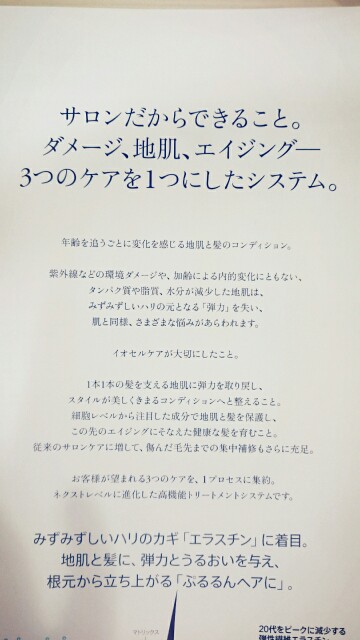 サロンだからできること。
ダメージ、地肌、エイジング―
3つのケアを1つにしたシステム。
年齢を追うごとに変化を感じる地肌と髪のコンディション。
紫外線などの環境ダメージや、加齢による内的変化にともない、
タンパク質や脂質、水分が減少した地肌は、
みずみずしいハリの元となる「弾力」を失い、
肌と同様、さまざまな悩みがあらわれます。
イオセルケアが大切にしたこと。
1本1本の髪を支える地肌に弾力を取り戻し、
スタイルが美しくきまるコンディションへと整えること。
細胞レベルから注目した成分で地肌と髪を保護し、
この先のエイジングにそなえた健康な髪を育むこと。
従来のサロンケアに増して、傷んだ毛先までの集中補修もさらに充足。
お客様が望まれる3つのケアを、1プロセスに集約。
ネクストレベルに進化した高機能トリートメントシステムです。
みずみずしいハリのカギ「エラスチン」に着目。
地肌と髪に、弾力とうるおいを与え、
根元から立ち上がる「ぷるるんヘアに」。
マトリックス
20代をピークに減少する
弾性繊維エラスチン